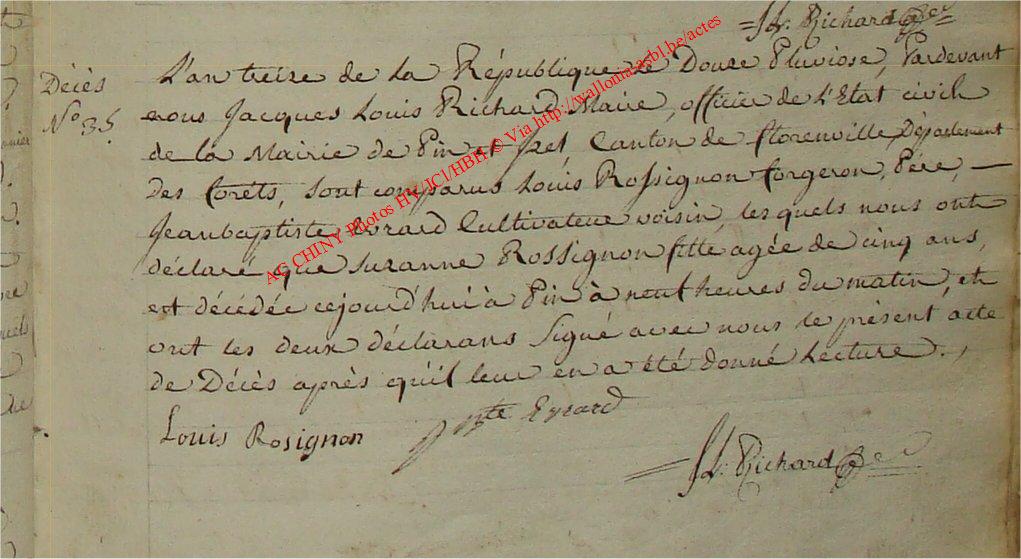 JL: Richard
Décès
N.o 35.
L'an treize de la République le Douze Pluviose, Pardevant
nous Jacques Louis Richard Maire, officier de L'Etat civil
de la Mairie de Pin et Izel Canton de florenville Département
des forêts, sont comparus Louis Rossignon forgeron, Pére, —
Jeanbaptiste Evrard Cultivateur voisin, lesquels nous ont
déclaré que Suzanne Rossignon fille agée de cinq ans,
est décédée cejourd'hui à Pin à neuf heures du matin, et
ont les deux déclarans Signé avec nous le présent acte
de Décès après qu'il leur en a été donné Lecture.,
Louis Rosignon
J Bte Evrard
JL: Richard
AG CHINY Photos HY JCl/HBH © Via http://wallonia.asbl.be/actes